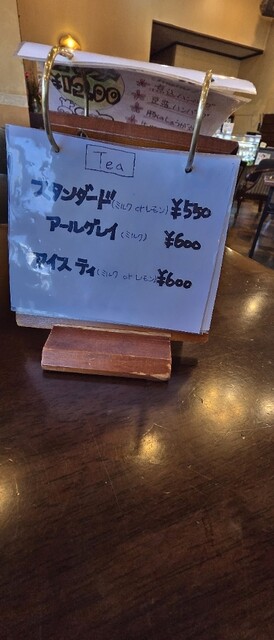 ¥1200
Tea
スタンダード(ミルク or レモン) ¥550
アールグレイ(ミルク) ¥600
アイスティ(ミルク or レモン) ¥600